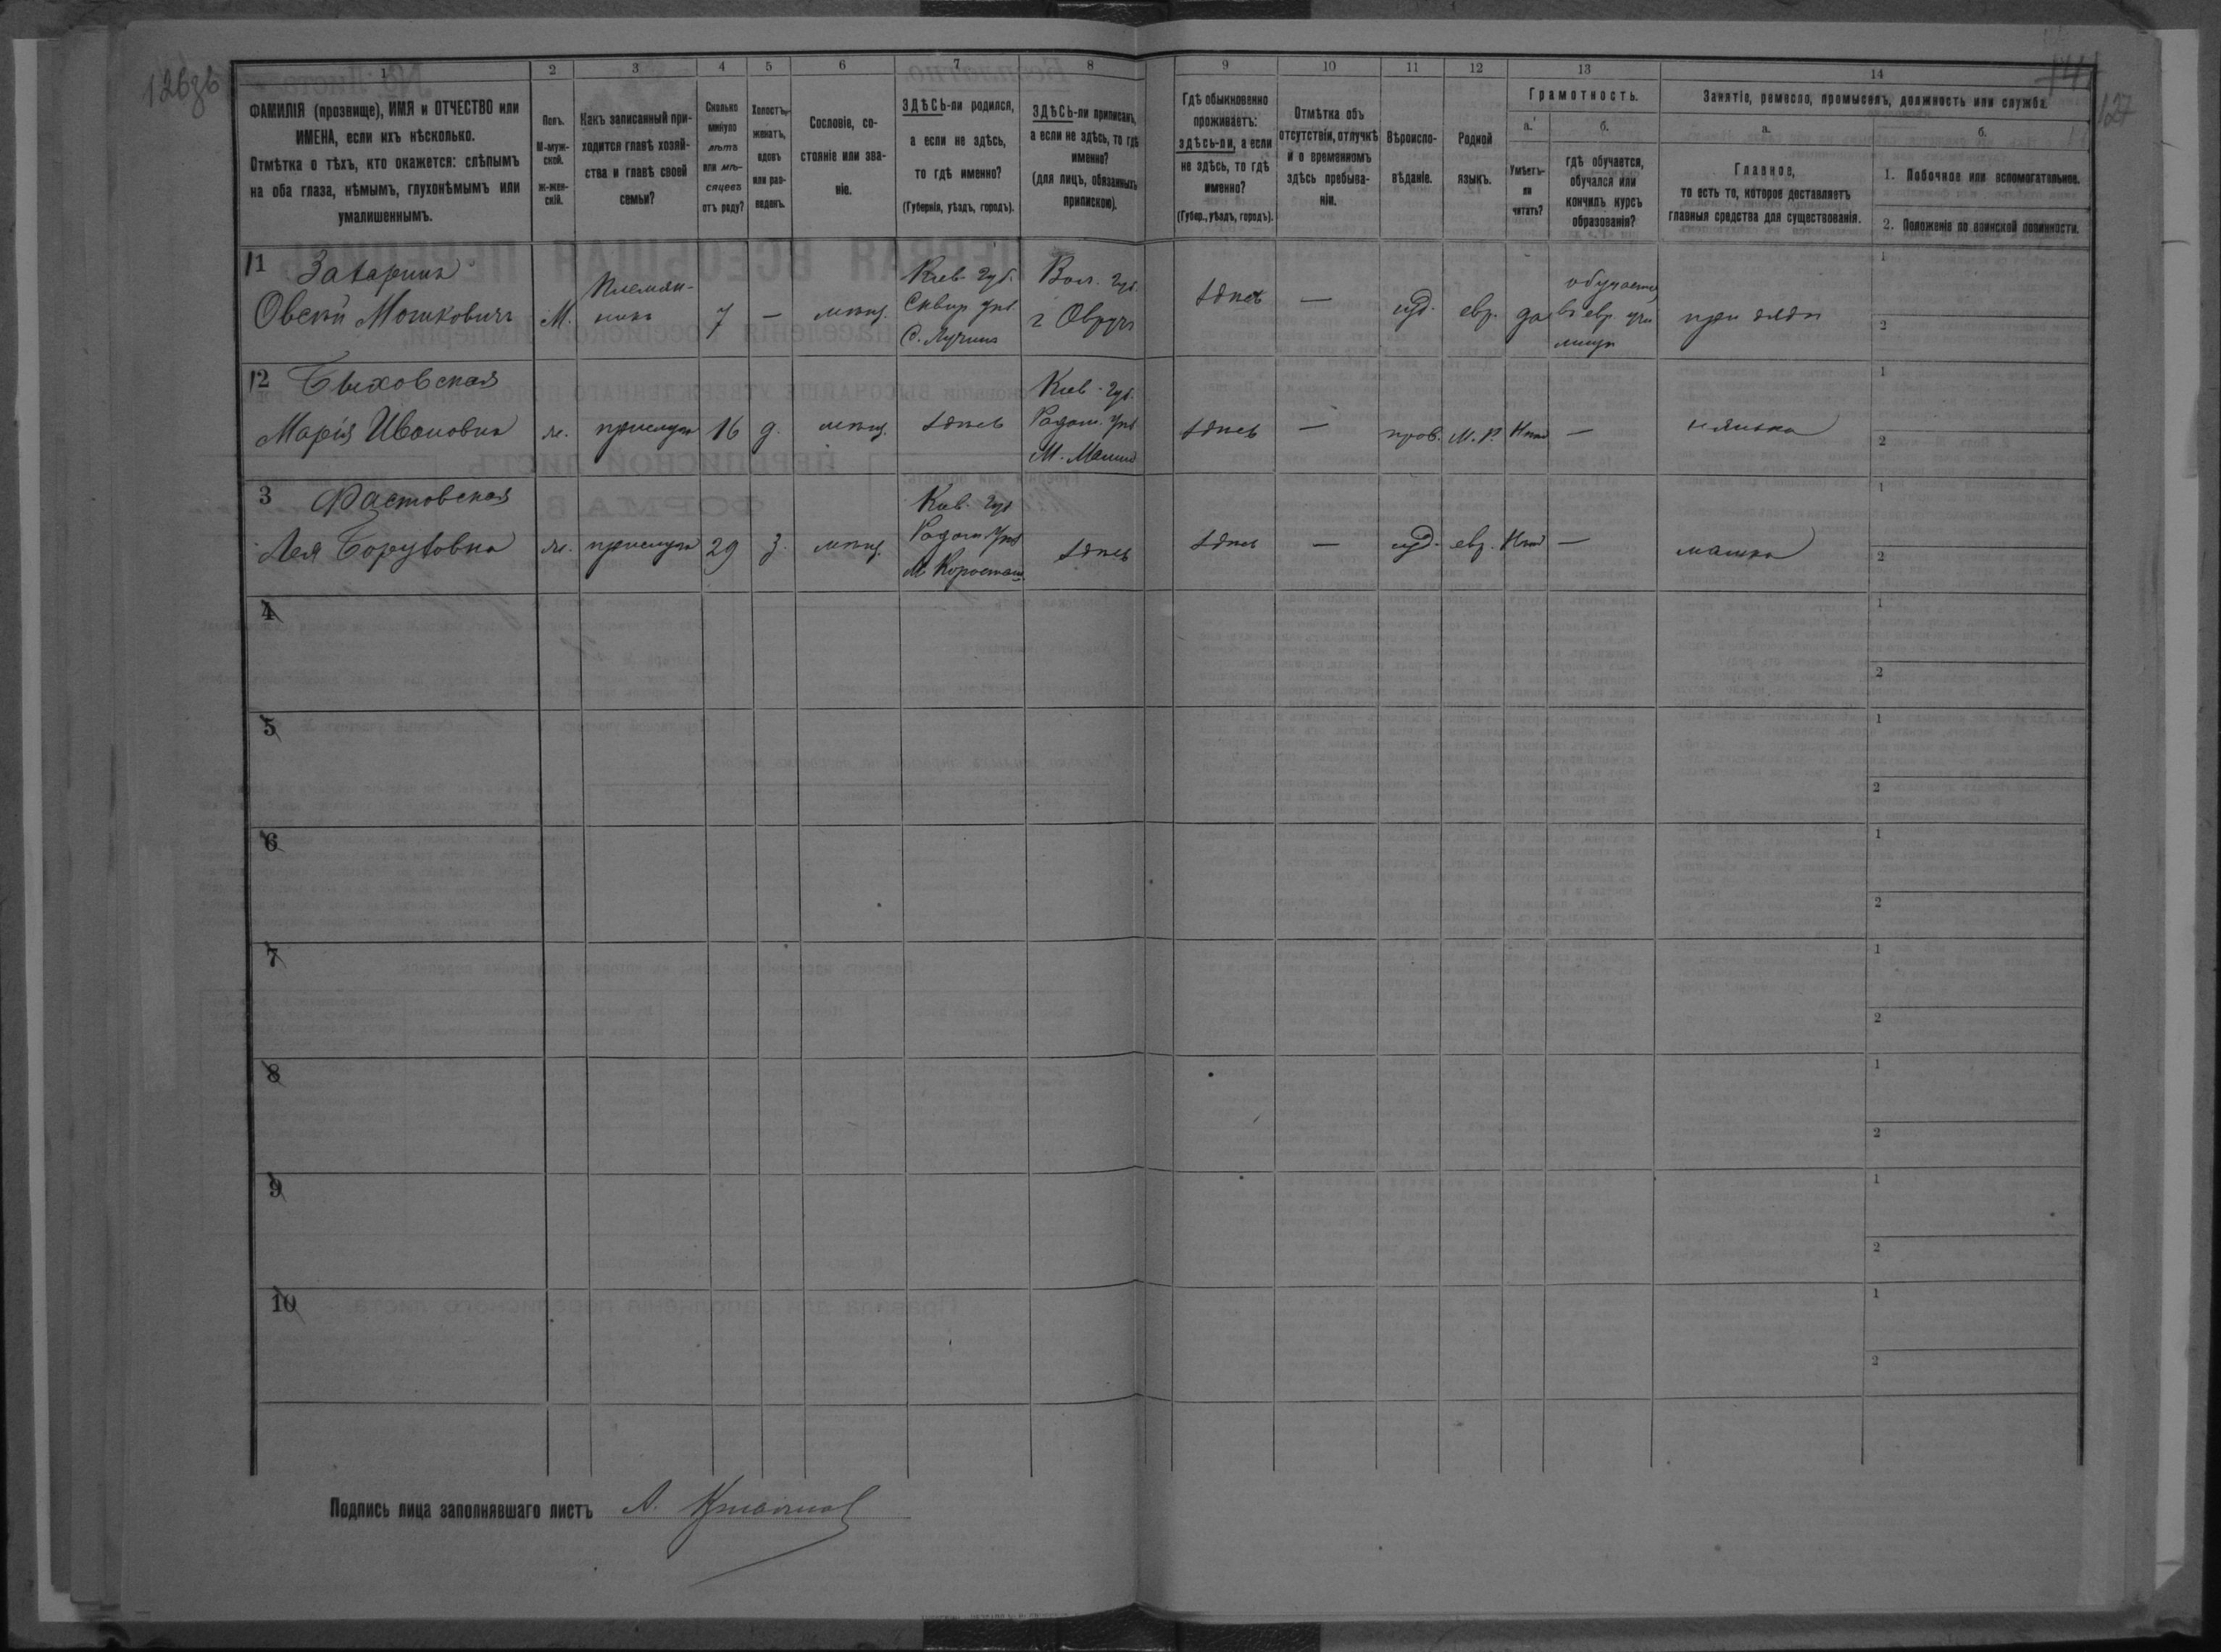 126зв
141
127
1 2 3 4 5 6 7 8 9 10 11 12 13 14
ФАМИЛІЯ (прозвище), ИМЯ и ОТЧЕСТВО или
ИМЕНА, если ихъ нѣсколько.
Отмѣтка о тѣхъ, кто окажется: слѣпымъ
на оба глаза, нѣмымъ, глухонѣмымъ или
умалишеннымъ.
Полъ.
М-муж-
ской.
Ж-жен-
скій.
Какъ записанный при-
ходится главѣ хозяй-
ства и главѣ своей
семьи?
Сколько
минуло
лѣтъ
или мѣ-
сяцевъ
отъ роду?
Холостъ,
женатъ,
вдовъ
или раз-
веденъ.
Сословіе, со-
стояніе или зва-
ніе.
ЗДѢСЬ-ли родился,
а если не здѣсь,
то гдѣ именно?
(Губернія, уѣздъ, городъ).
ЗДѢСЬ-ли приписанъ,
а если не здѣсь, то гдѣ
именно?
(для лицъ, обязанныхъ
припискою).
Гдѣ обыкновенно
проживаетъ:
здѣсь-ли, а если
не здѣсь, то гдѣ
именно?
(Губер., уѣздъ, городъ).
Отмѣтка объ
отсутствіи, отлучкѣ
и о временномъ
здѣсь пребыва-
ніи.
Вѣроиспо-
вѣданіе.
Родной
языкъ.
Грамотность.
а.
Умѣетъ-
ли
читать?
б.
гдѣ обучается,
обучался или
кончилъ курсъ
образованія?
Занятіе, ремесло, промыселъ, должность или служба.
а.
Главное,
то есть то, которое доставляетъ
главныя средства для существованія.
б.
1. Побочное или вспомогательное.
2. Положеніе по воинской повинности.
11 Захаринъ
Овсѣй Мошковичъ
М.
Племян-
никъ
7
—
мѣщ.
Кіев. губ.
Сквир. уѣз.
Вол. губ.
г Овручъ
здѣсь
—
іуд.
евр.
да
обучается
въ евр. учи
лищѣ
при дядѣ
1
2
12 Быховская
Марія Ивановна
ж.
прислуга
16
д.
мѣщ.
здѣсь
Кіев. губ.
Радом. уѣз.
М. Малинъ
здѣсь
—
прав.
М. Р.
Нѣтъ
—
нянька
1
2
3 Фастовская
Лея Боруховна
ж.
прислуга
29
з.
мѣщ.
Кіев. губ
Радом уѣз
здѣсь
здѣсь
—
іуд.
евр.
Нѣтъ
—
мамка
1
2
4
1
2
5
1
2
6
1
2
7
1
2
8
1
2
9
1
2
10
1
2
Подпись лица заполнявшаго листъ А.